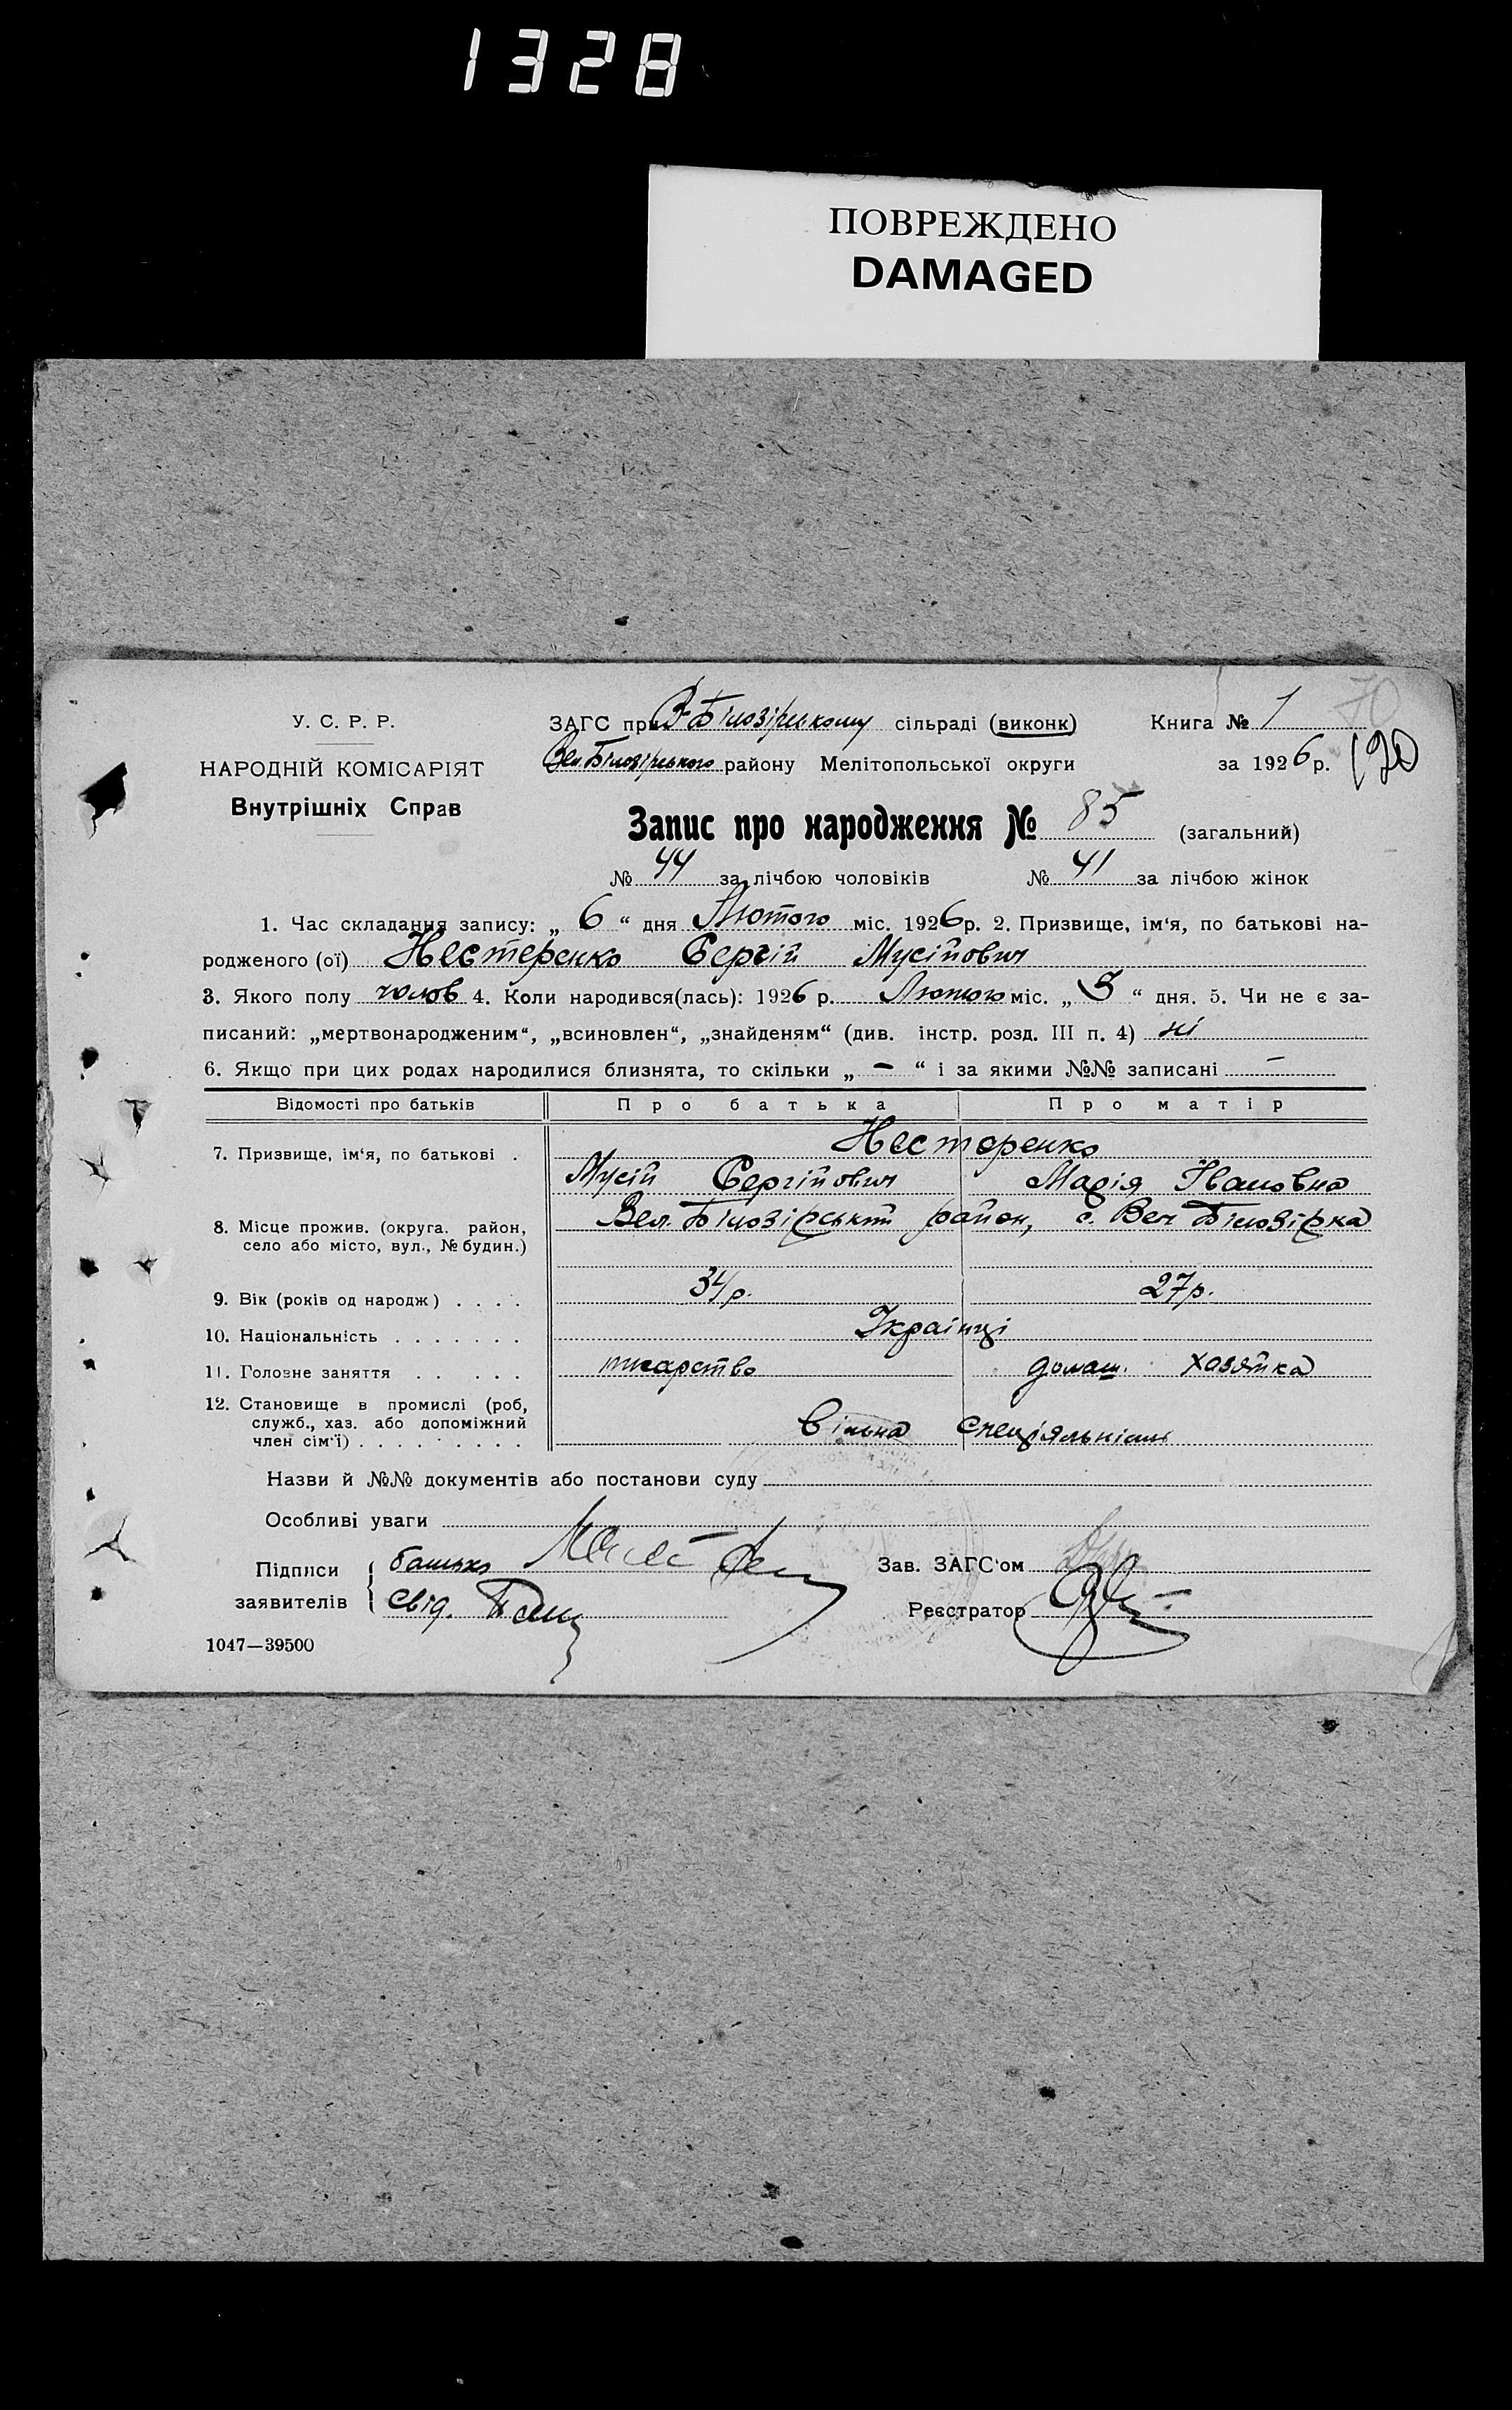 1328
ПОВРЕЖДЕНО
DAMAGED
70
У. С. Р. Р.
ЗАГС при В-Білозірському сільраді (виконк) Книга № 1
НАРОДНІЙ КОМІСАРІЯТ
Вел.Білозірського району Мелітопольської округи за 1926 р.
Внутрішніх Справ
Запис про народження № 85 (загальний)
№ 44 за лічбою чоловіків № 41 за лічбою жінок
1. Час складання запису: „ 6 “ дня Лютого міс. 1926р. 2. Призвище, ім‘я, по батькові на-
родженого (ої) Нестеренко Сергій Мусійович
3. Якого полу чолов 4. Коли народився(лась): 1926 р. Лютого міс. „ 3 “ дня. 5. Чи не є за-
писаний: „мертвонародженим“, „всиновлен“, „знайденям“ (див. інстр. розд. III п. 4) ні
6. Якщо при цих родах народилися близнята, то скільки „ — “ і за якими №№ записані —
Відомості про батьків Про батька Про матір
7. Призвище, ім‘я, по батькові . Нестеренко
Мусій Сергійович Марія Івановна
8. Місце прожив. (округа. район, Вел. Білозірський район, с. Вел Білозірка
село або місто, вул., № будин.)
9. Вік (років од народж) . . . . 34р. 27р.
10. Національність . . . . . . . Українці
11. Головне заняття . . . . . писарство домаш. хазяйка
12. Становище в промислі (роб, служб., хаз. або допоміжний член сім‘ї) . . . . . . . . . Вільна спеціяльність
Назви й №№ документів або постанови суду
Особливі уваги
Підписи батько Зав. ЗАГС‘ом
заявителів свід. Реєстратор
1047—39500